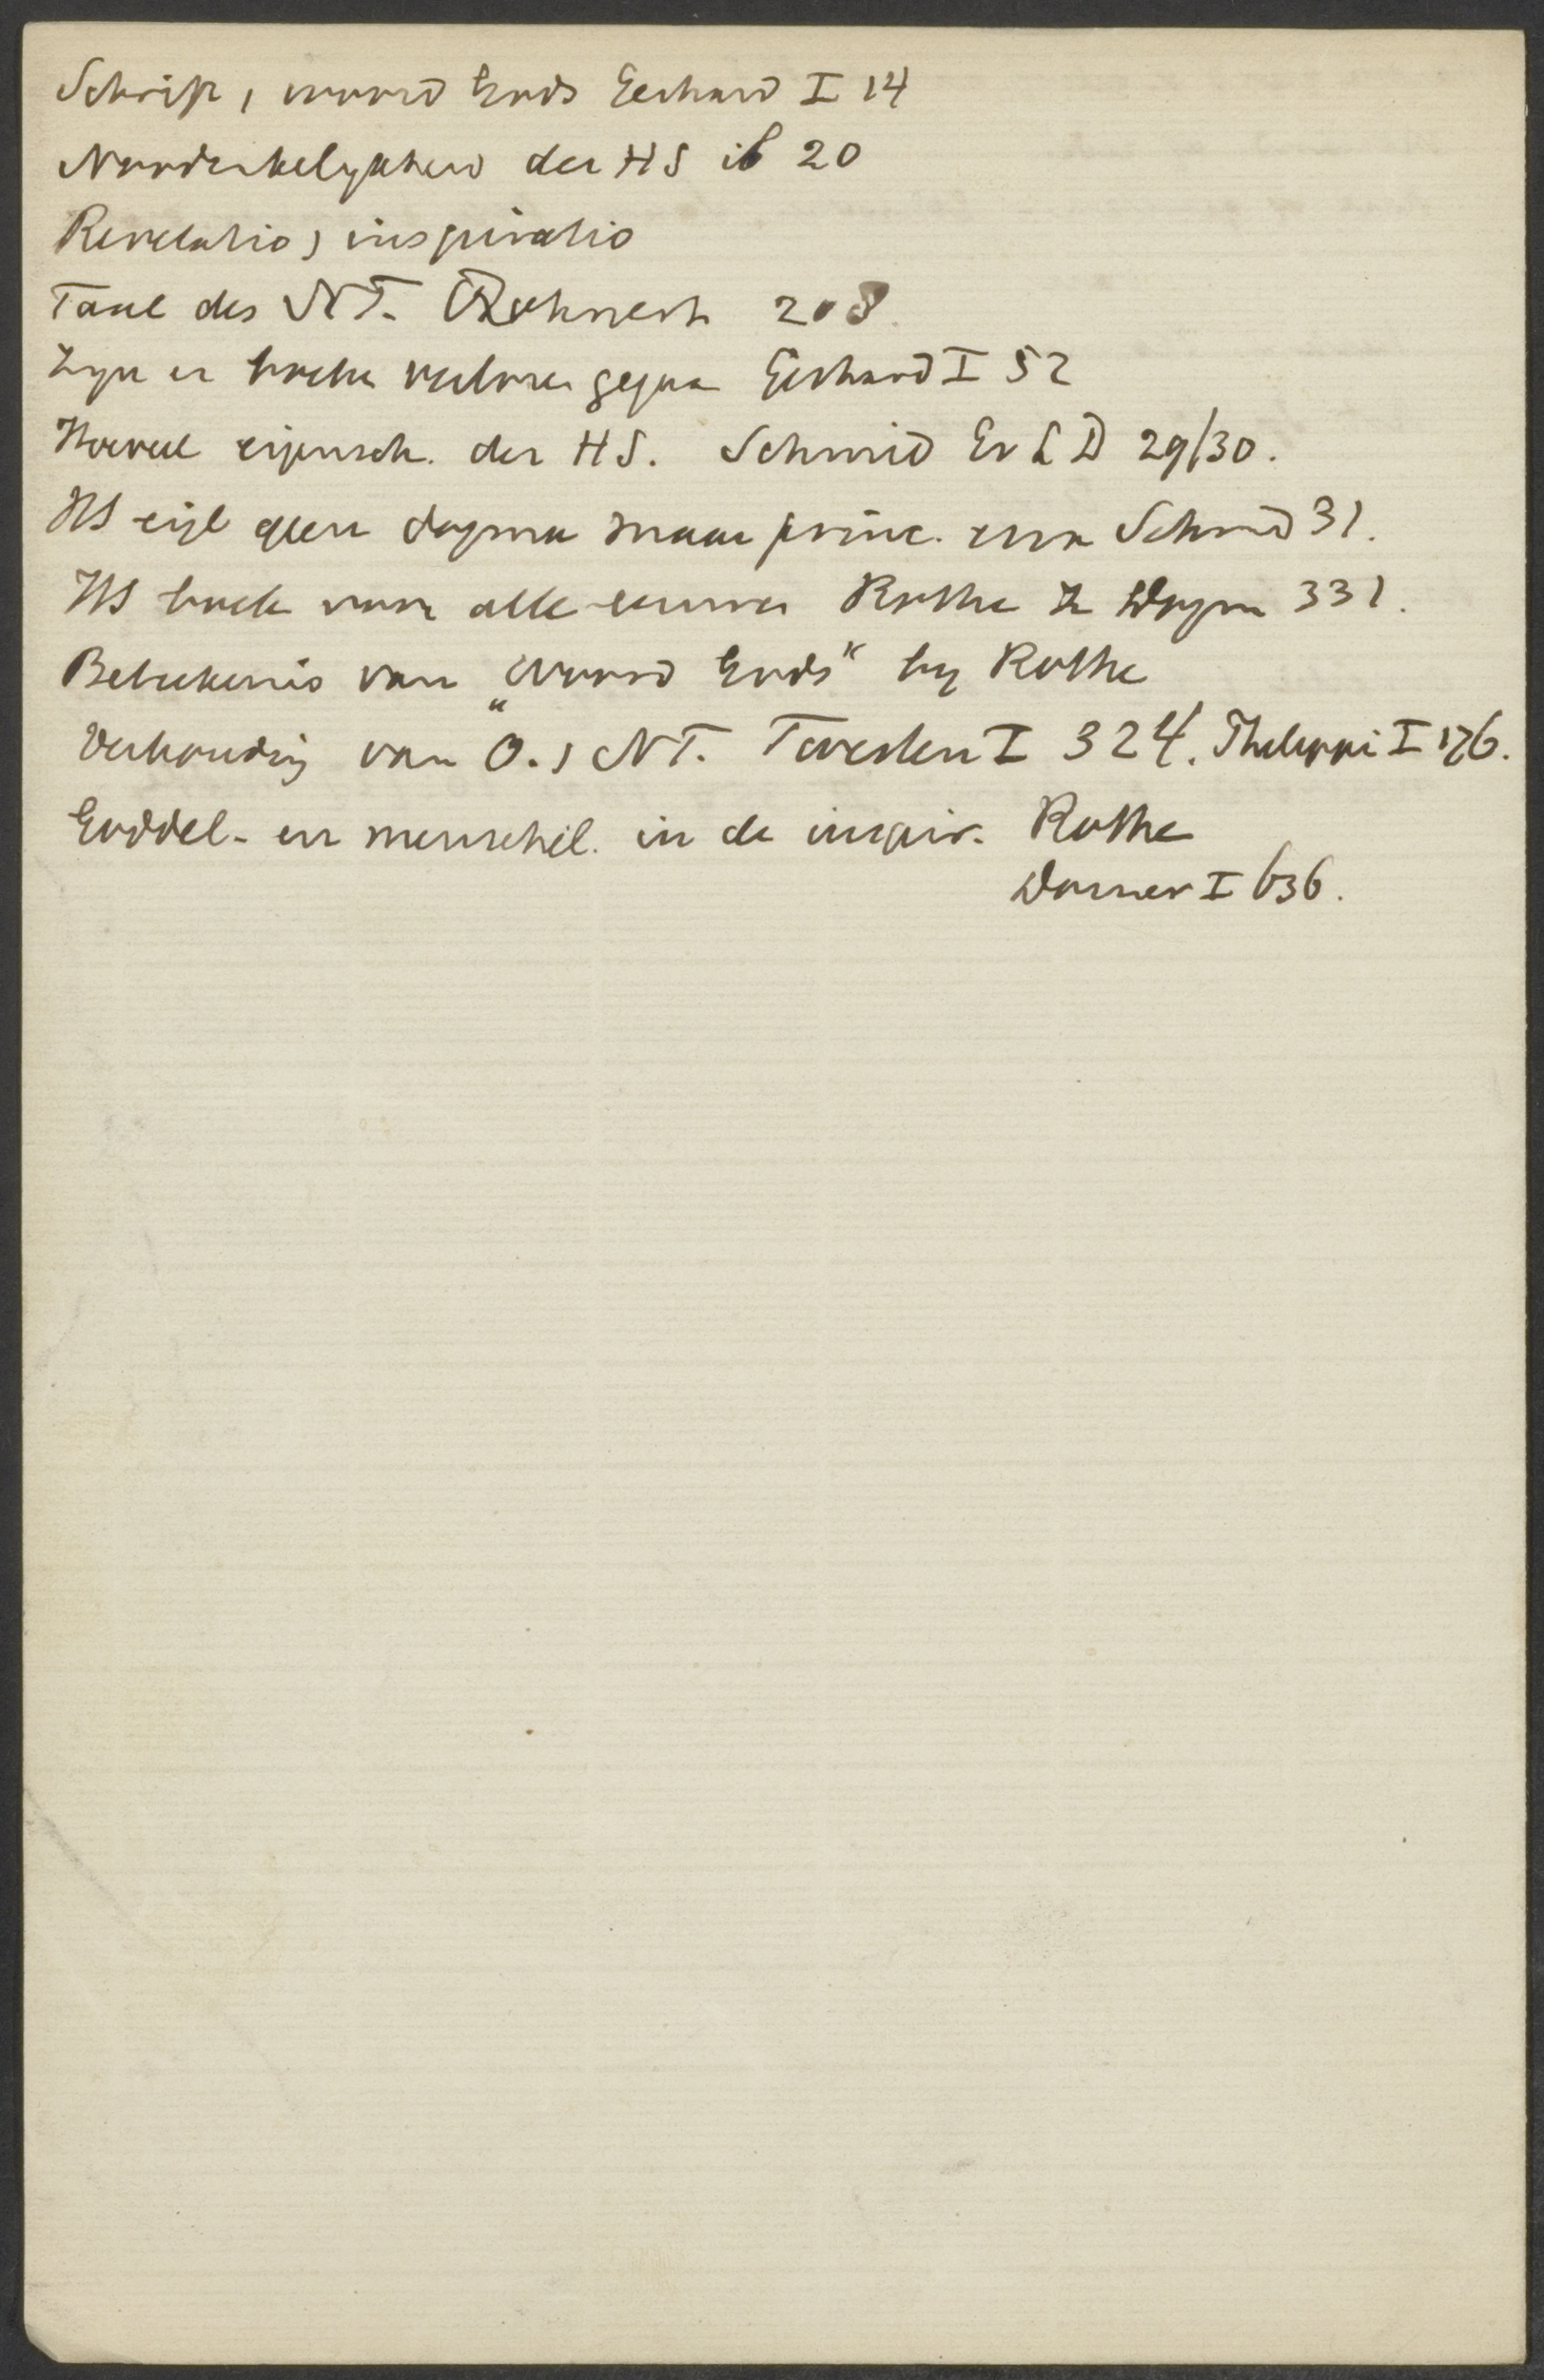 Schrift, woord Gods Gerhard I 14
Noodzakelykheid der HS ib 20
Revelatio, inspiratio
Taal des NT. Rohnert 208.
Zyn er boeken verloren gegaan Gerhard I 52
Hoeveel eigensch. der HS. Schmid Ev L D 29/30.
HS eigl geen dogma maar princ. ervan Schmid 31.
HS boek voor alle eeuwen Rothe Z Dogm 331.
Beteekenis van „Woord Gods“ by Rothe
Verhouding van O., NT. Twesten I 324. Philippi I 176.
Goddel- en menschel. in de inspir. Rothe
Dorner I 636.